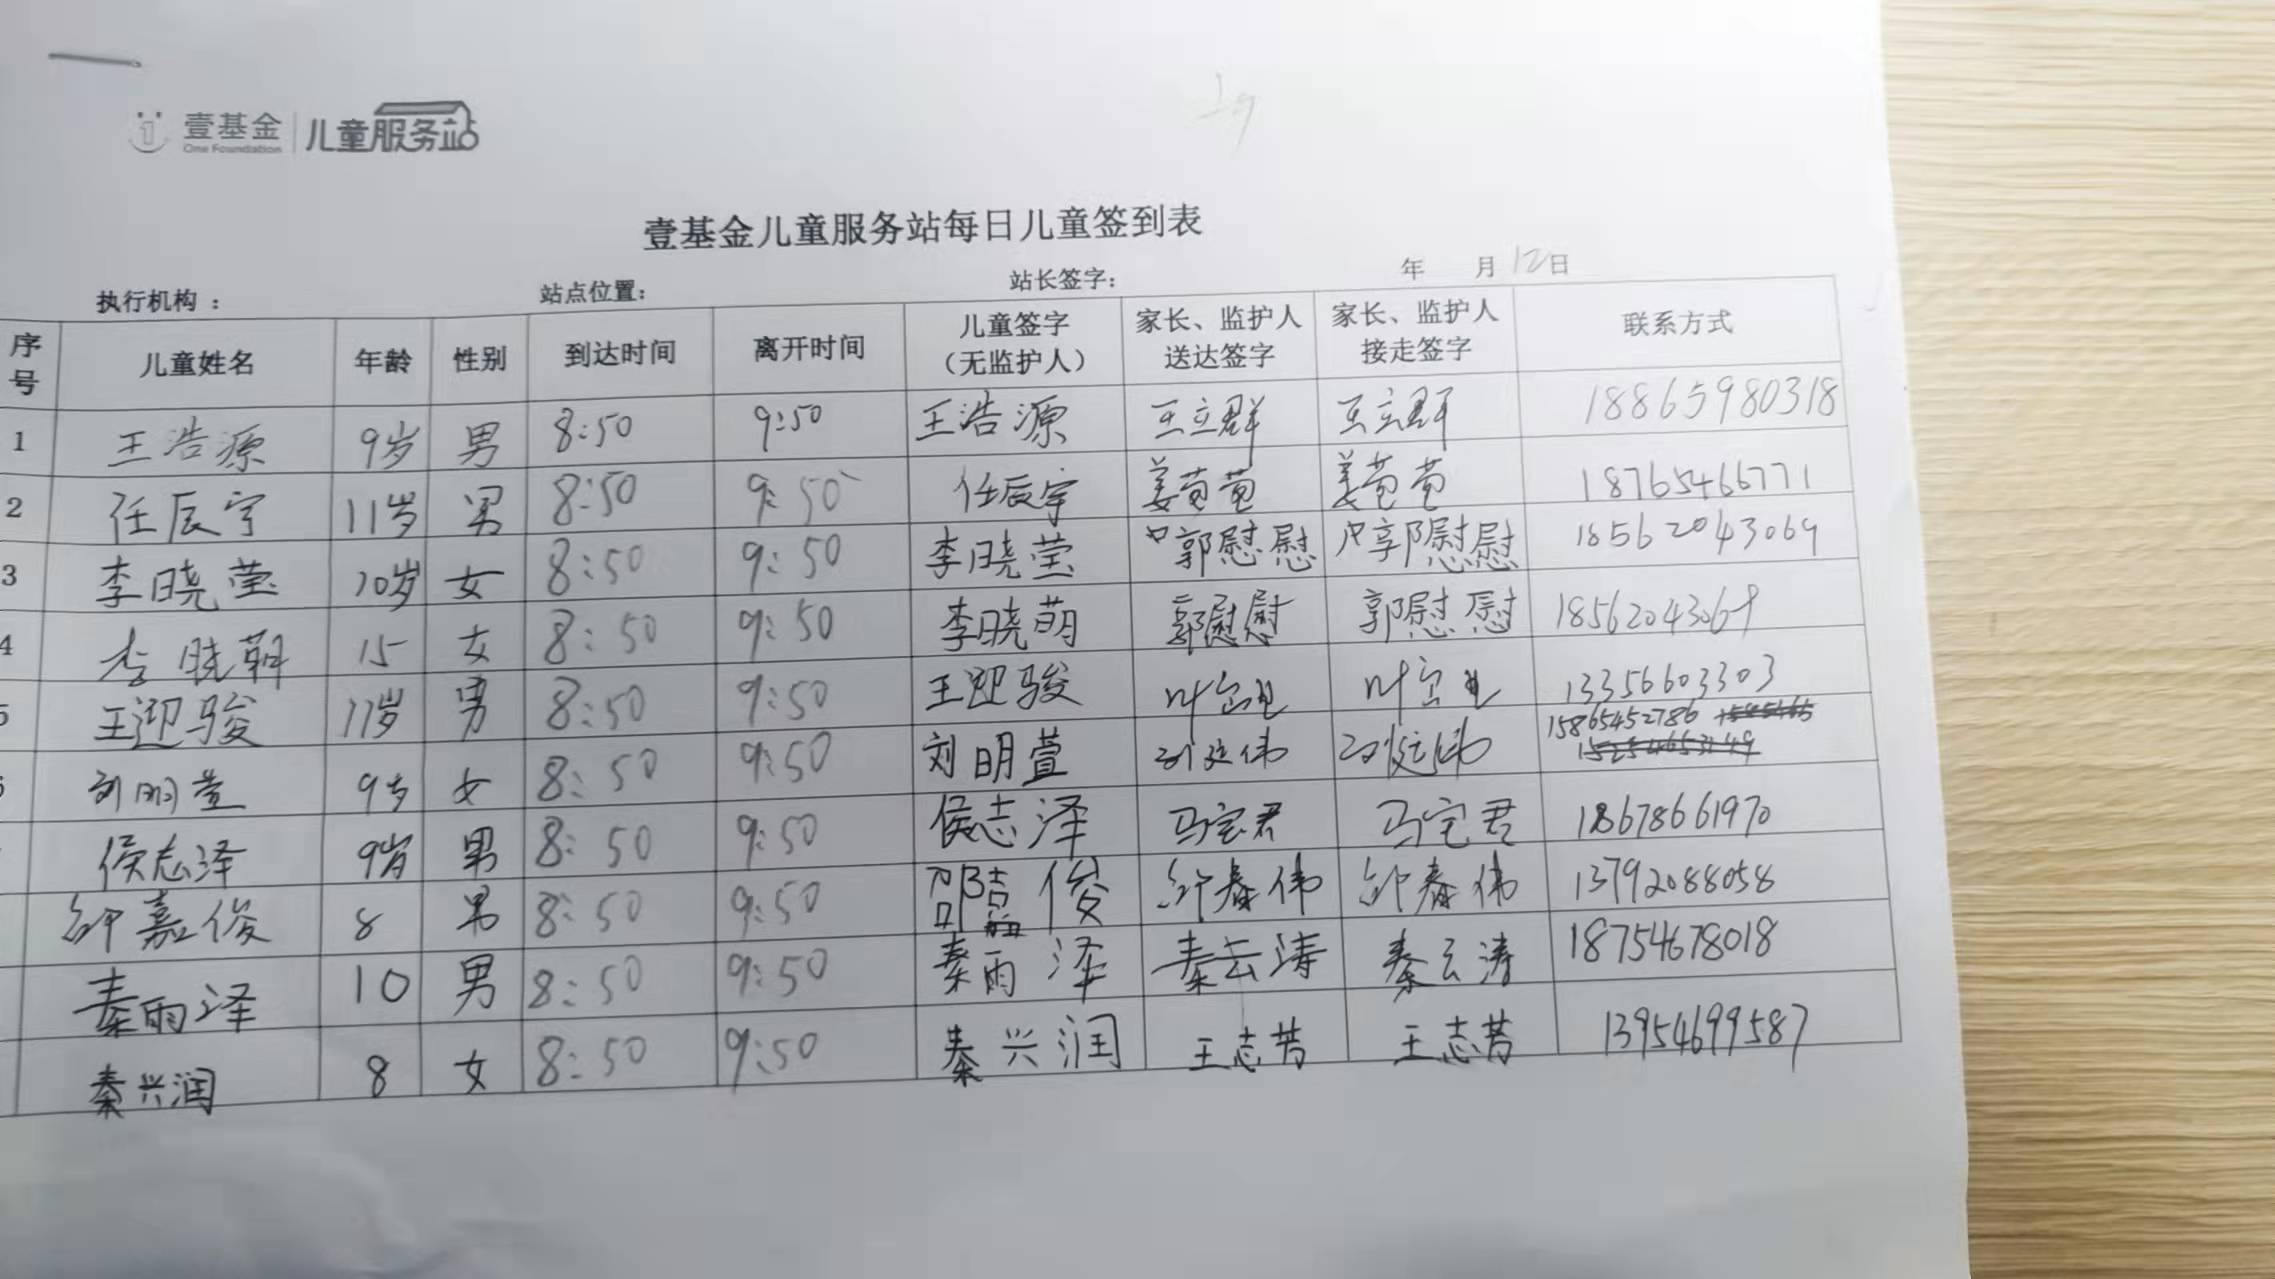 壹基金 儿童服务站
One Foundation
壹基金儿童服务站每日儿童签到表
执行机构 ： 站点位置： 站长签字： 年 月 12日
序号 儿童姓名 年龄 性别 到达时间 离开时间 儿童签字（无监护人） 家长、监护人送达签字 家长、监护人接走签字 联系方式
1 王浩源 9岁 男 8:50 9:50 王浩源 王立群 王立群 18865980318
2 任辰宇 11岁 男 8:50 9:50 任辰宇 姜苞苞 姜苞苞 18765466771
3 李晓莹 10岁 女 8:50 9:50 李晓莹 郭慰慰 郭慰慰 18562043069
4 李晓萌 15 女 8:50 9:50 李晓萌 郭慰慰 郭慰慰 18562043069
5 王迎骏 11岁 男 8:50 9:50 王迎骏 13356603303
刘明萱 9岁 女 8:50 9:50 刘明萱 15865452786
侯志泽 9岁 男 8:50 9:50 侯志泽 马宝君 马宝君 18678661970
邰嘉俊 8 男 8:50 9:50 邵嘉俊 邰春伟 邰春伟 13792088058
秦雨泽 10 男 8:50 9:50 秦雨泽 秦云涛 秦云涛 18754678018
秦兴润 8 女 8:50 9:50 秦兴润 王志芳 王志芳 13954699587